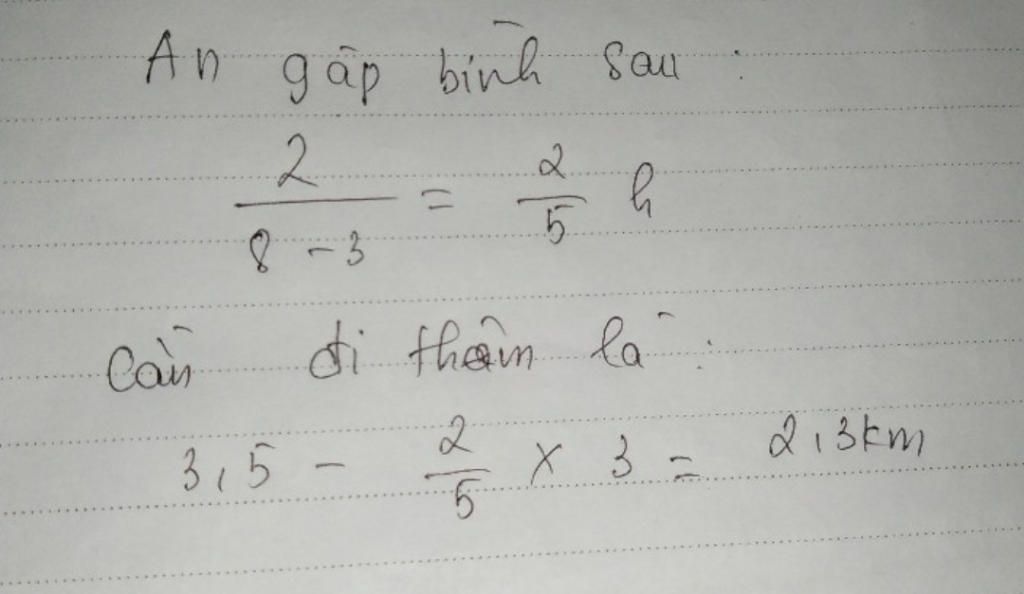 An gặp bình sau :
2 / 8 - 3 = 2 / 5 h
Cần đi thêm là :
3,5 - 2 / 5 x 3 = 2,3km